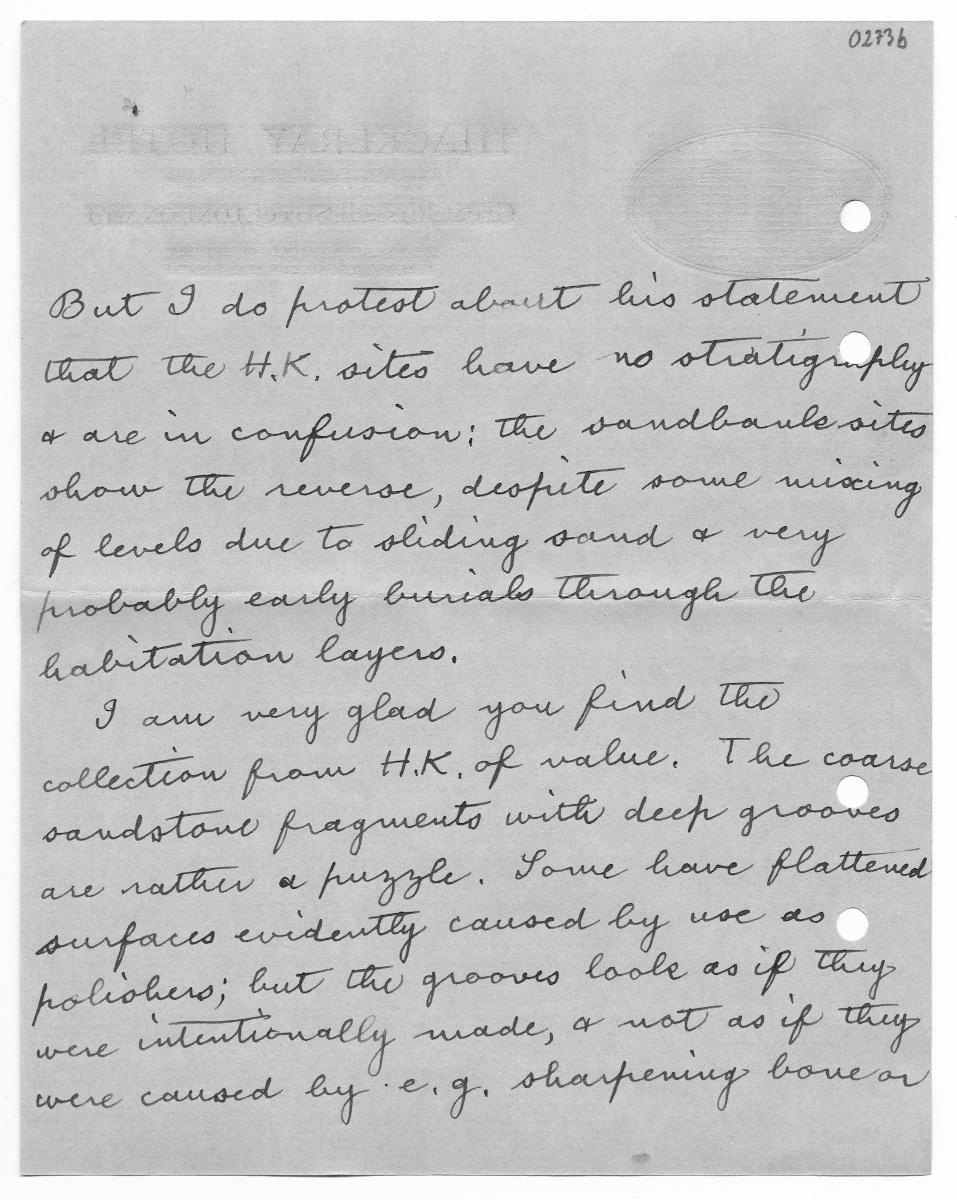 02736
But I do protest about his statement
that the H.K. sites have no stratigraphy
& are in confusion; the sandbank sites
show the reverse, despite some mixing
of levels due to sliding sand & very
probably early burials through the
habitation layers.
I am very glad you find the
collection from H.K. of value. The coarse
sandstone fragments with deep grooves
are rather a puzzle. Some have flattened
surfaces evidently caused by use as
polishers; but the grooves look as if they
were intentionally made, & not as if they
were caused by e.g. sharpening bone or